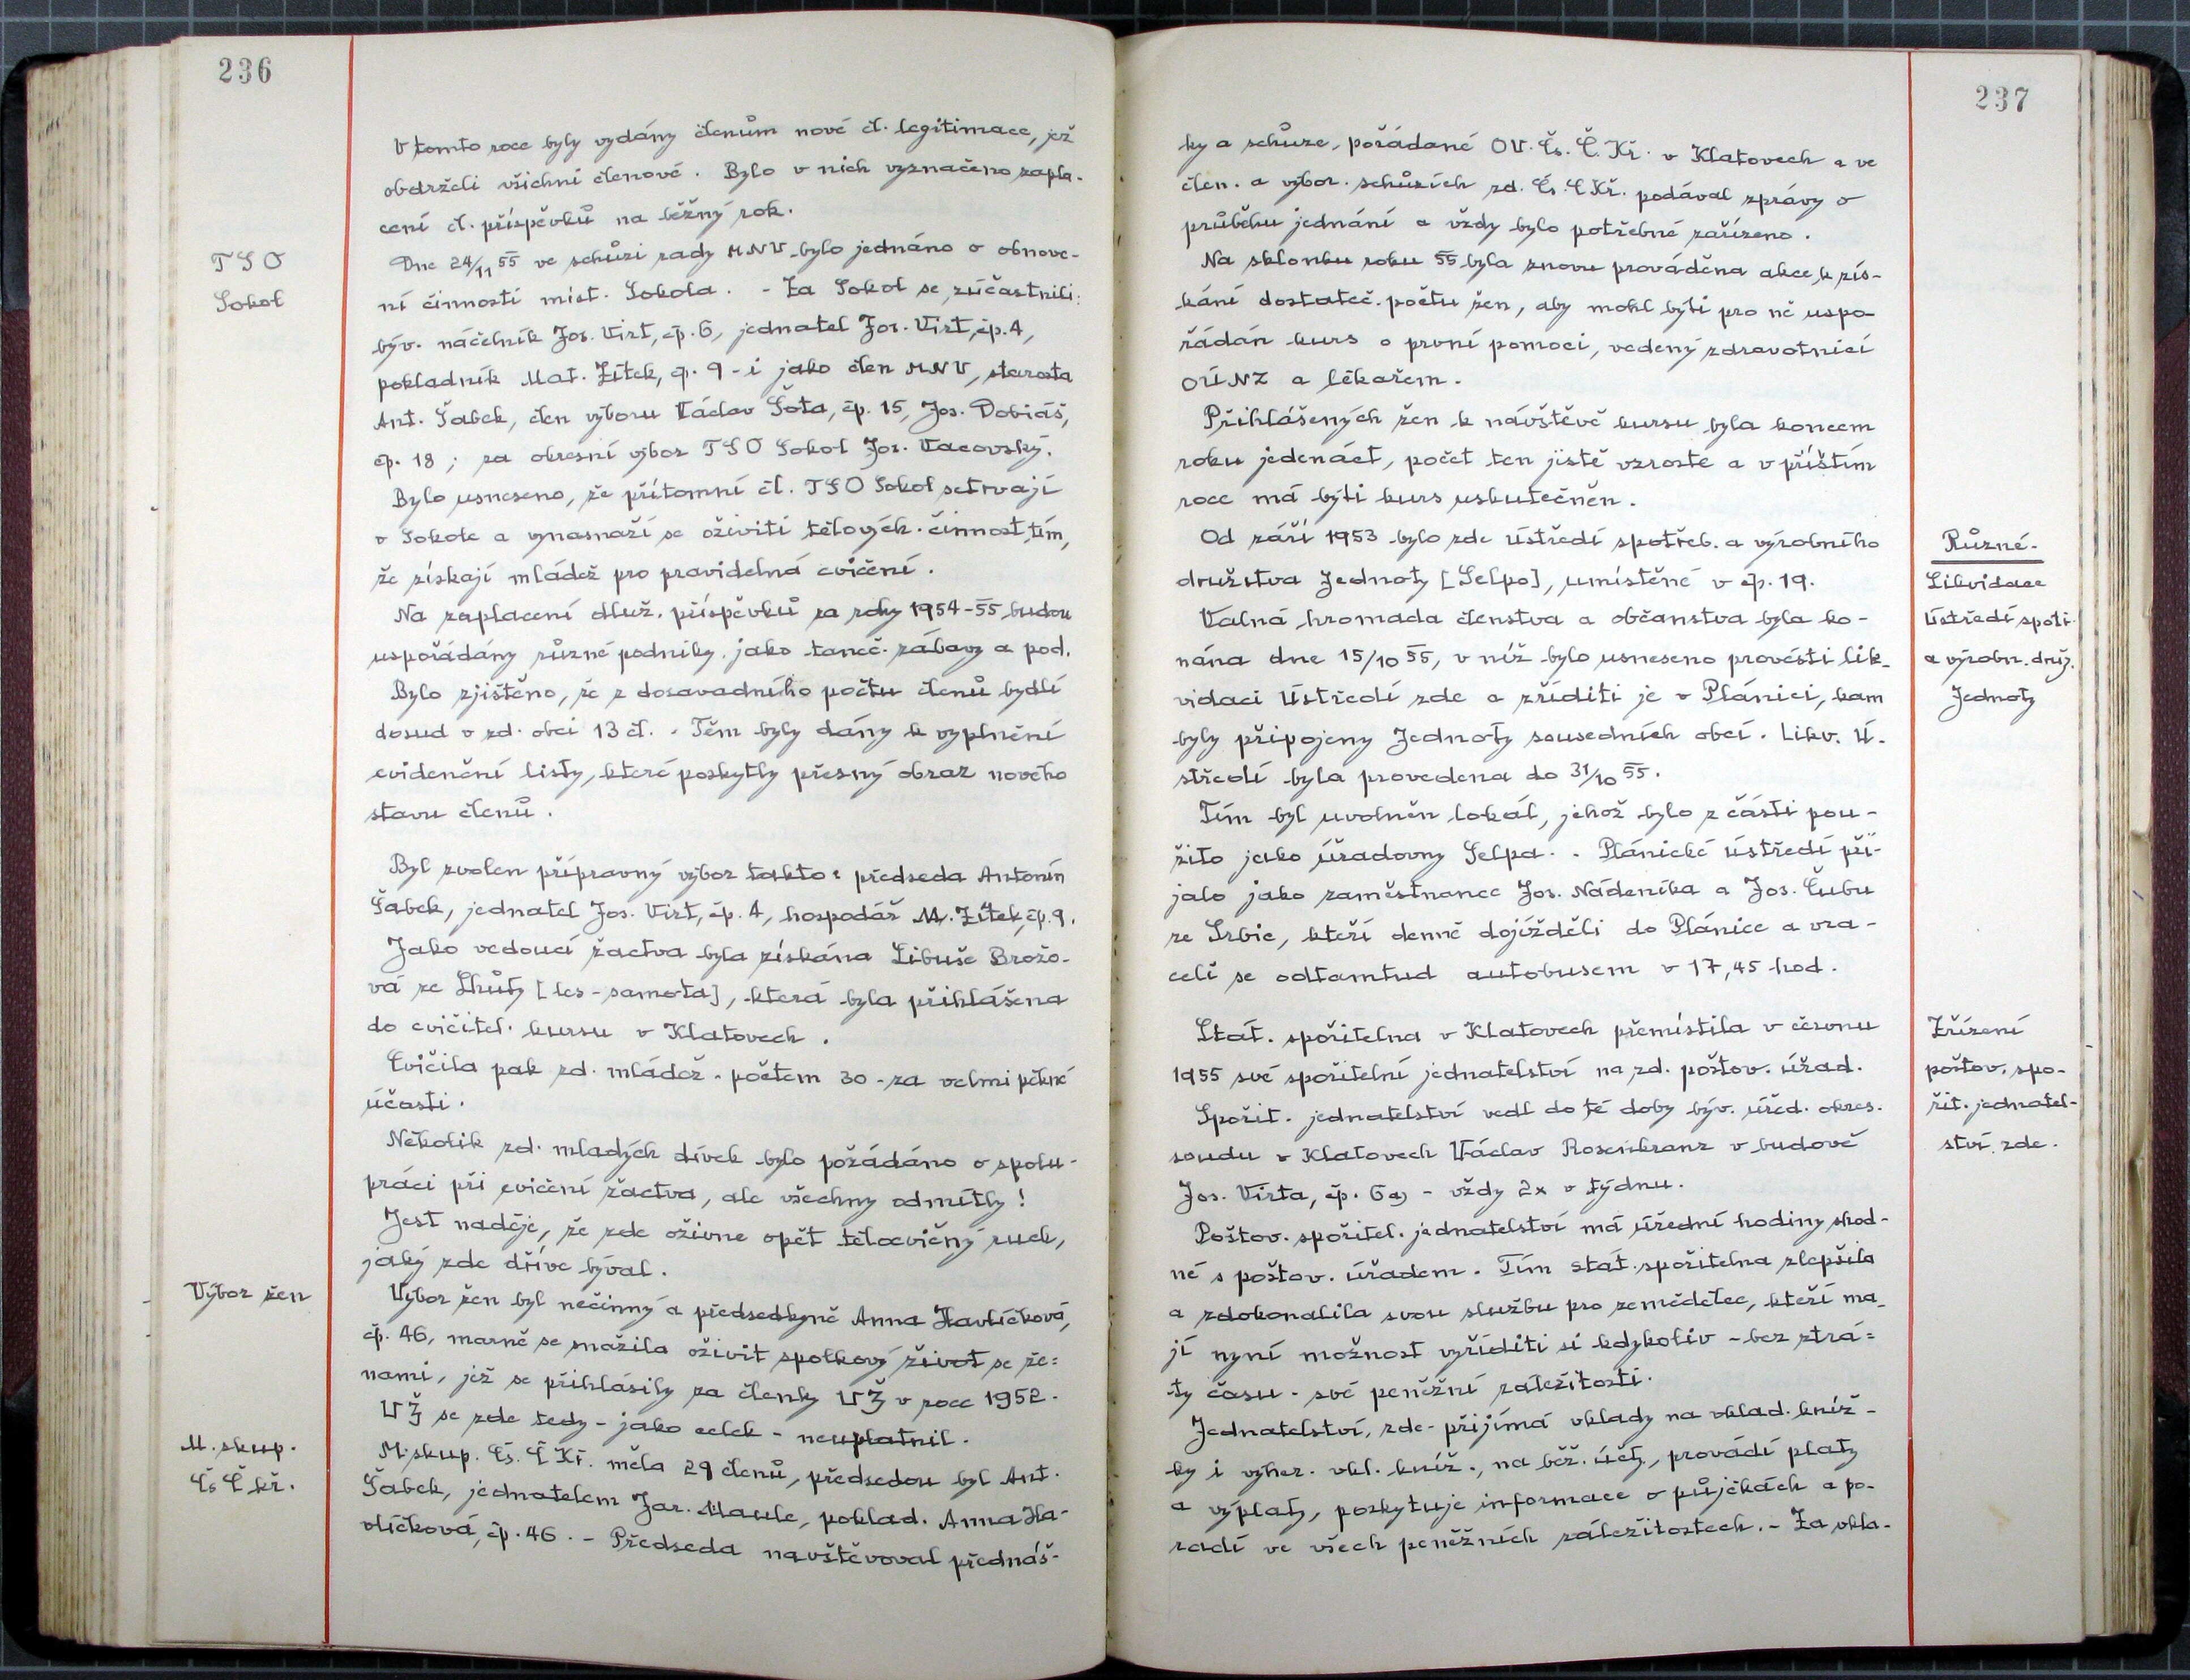 236
V tomto roce byly vydány členům nové čl. legitimace, jež
obdrželi všichni členové. Bylo v nich vyznačeno zapla-
cení čl. příspěvků na běžný rok.
TSO
Sokol
Dne 24/11 55 ve schůzi rady MNV bylo jednáno o obnove-
ní činnosti míst. Sokola. - Za Sokol se zúčastnili:
býv. náčelník Jos. Virt, čp. 6, jednatel Jos. Virt, čp. 4,
pokladník Mat. Žítek, čp. 9 - i jako člen MNV, starosta
Ant. Šabek, člen výboru Václav Šota, čp. 15, Jos. Dobiáš,
čp. 18; za okresní výbor TSO Sokol Jos. Vacovský.
Bylo usneseno, že přítomní čl. TSO Sokol setrvají
v Sokole a vynasnaží se oživiti tělových. činnost tím,
že získají mládež pro pravidelná cvičení.
Na zaplacení dluž. příspěvků za roky 1954-55 budou
uspořádány různé podniky, jako taneč. zábavy a pod.
Bylo zjištěno, že z dosavadního počtu členů bydlí
dosud v zd. obci 13 čl. - Těm byly dány k vyplnění
evidenční listy, které poskytly přesný obraz nového
stavu členů.
Byl zvolen přípravný výbor takto: předseda Antonín
Šabek, jednatel Jos. Virt, čp. 4, hospodář M. Žítek, čp. 9.
Jako vedoucí žactva byla získána Libuše Brožo-
vá ze Lhůty [les - samota], která byla přihlášena
do cvičitel. kursu v Klatovech.
Cvičila pak zd. mládež - počtem 30 - za velmi pěkné
účasti.
Několik zd. mladých dívek bylo požádáno o spolu-
práci při cvičení žactva, ale všechny odmítly!
Jest naděje, že zde oživne opět tělocvičný ruch,
jaký zde dříve býval.
Výbor žen
Výbor žen byl nečinný a předsedkyně Anna Havlíčková,
čp. 46, marně se snažila oživit spolkový život se že=
nami, jež se přihlásily za členky VŽ v roce 1952.
VŽ se zde tedy - jako celek - neuplatnil.
M. skup.
Čs Č kř.
M. skup. Čs. Č Kř. měla 29 členů, předsedou byl Ant.
Šabek, jednatelem Jar. Maule, poklad. Anna Ha-
vlíčková, čp. 46. - Předseda navštěvoval přednáš-
237
ky a schůze, pořádané OV. Čs. Č. Kř. v Klatovech a ve
člen. a výbor. schůzích zd. Čs. Č Kř. podával zprávy o
průběhu jednání a vždy bylo potřebné zařízeno.
Na sklonku roku 55 byla znovu prováděna akce k zís-
kání dostateč. počtu žen, aby mohl býti pro ně uspo-
řádán kurs o první pomoci, vedený zdravotnicí
OÚNZ a lékařem.
Přihlášených žen k návštěvě kursu byla koncem
roku jedenáct, počet ten jistě vzroste a v příštím
roce má býti kurs uskutečněn.
Různé.
Likvidace
Ústředí spotř.
a výrobn. druž.
Jednoty
Od září 1953 bylo zde ústředí spotřeb. a výrobního
družstva Jednoty [Selpo], umístěné v čp. 19.
Valná hromada členstva a občanstva byla ko-
nána dne 15/10 55, v níž bylo usneseno provésti lik-
vidaci Ústředí zde a zříditi je v Plánici, kam
byly připojeny Jednoty sousedních obcí. Likv. Ú-
středí byla provedena do 31/10 55.
Tím byl uvolněn lokál, jehož bylo z části pou-
žito jako úřadovny Selpa. - Plánické ústředí při-
jalo jako zaměstnance Jos. Nádeníka a Jos. Čubu
ze Srbic, kteří denně dojížděli do Plánice a vra-
celi se odtamtud autobusem v 17,45 hod.
Zřízení
poštov. spo-
řit. jednatel-
ství zde.
Stát. spořitelna v Klatovech přemístila v červnu
1955 své spořitelní jednatelství na zd. poštov. úřad.
Spořit. jednatelství vedl do té doby býv. úřed. okres.
soudu v Klatovech Václav Rosenkranz v budově
Jos. Virta, čp. 6 a) - vždy 2x v týdnu.
Poštov. spořitel. jednatelství má úřední hodiny shod-
né s poštov. úřadem. Tím stát. spořitelna zlepšila
a zdokonalila svou službu pro zemědělce, kteří ma-
jí nyní možnost vyříditi si kdykoliv - bez ztrá=
ty času - své peněžní záležitosti.
Jednatelství zde přijímá vklady na vklad. kníž-
ky i výher. vkl. kníž., na běž. účty, provádí platy
a výplaty, poskytuje informace o půjčkách a po-
radí ve všech peněžních záležitostech. - Za vkla-